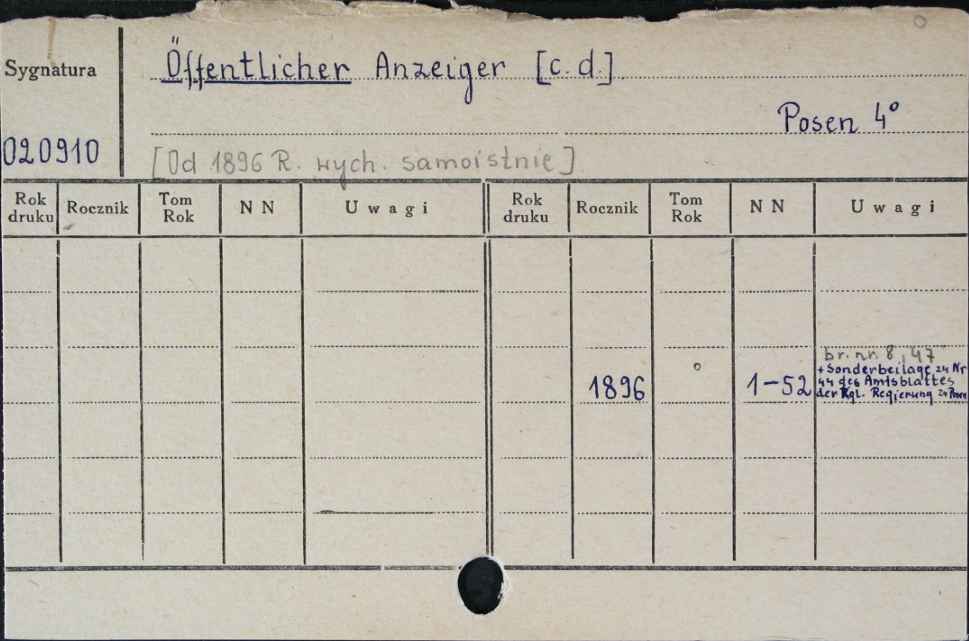 Sygnatura
Öffentlicher Anzeiger [c.d.]
Posen 4°
020910
[Od 1896 R. wych. samoistnie]
Rok druku Rocznik Tom Rok N N Uwagi Rok druku Rocznik Tom Rok N N Uwagi
br. nr. 8, 47
+ Sonderbeilage zu Nr
1896 1-52 44 des Amtsblattes
der Kgl. Regierung zu Posen